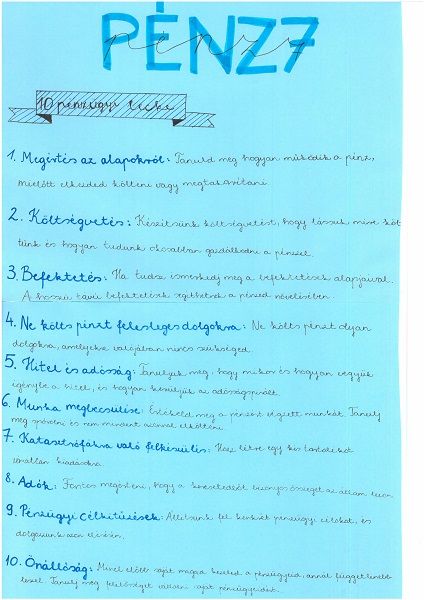 PÉNZ7
pénz7
10 pénzügyi lecke
1. Megértés az alapokról: Tanuld meg hogyan működik a pénz,
mielőtt elkezded költeni vagy megtakarítani.
2. Költségvetés: Készítsünk költségvetést, hogy lássuk mire köl
tünk és hogyan tudunk okosabban gazdálkodni a pénzzel.
3. Befektetés: Ha tudsz, ismerkedj meg a befektetések alapjaival.
A hosszú távú befektetések segíthetnek a pénzed növelésében.
4. Ne költs pénzt felesleges dolgokra: Ne költs pénzt olyan
dolgokra, amelyekre valójában nincs szükséged.
5. Hitel és adósság: Tanuljuk meg, hogy mikor és hogyan vegyük
igénybe a hitelt, és hogyan kerüljük az adósságspirált.
6. Munka megbecsülése: Értékeld meg a pénzért végzett munkát. Tanulj
meg spórolni és nem mindent azonnal elkölteni.
7. Katasztrófákra való felkészülés: Hozz létre egy kis tartalékot
váratlan kiadásokra.
8. Adók: Fontos megérteni, hogy a keresetedből bizonyos összeget az állam
9. Pénzügyi Célkitűzések: Állítsunk fel konkrét pénzügyi célokat, és
dolgozzunk azon elérésén.
10. Önállóság: Minél előbb saját magad kezeled a pénzügyeid, annál függetlenebb
leszel. Tanulj meg felelősséget vállalni saját pénzügyeidért.